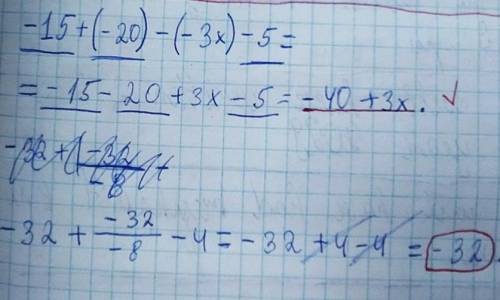 -15+(-20)-(-3x)-5=
=-15-20+3x-5=-40+3x. ✓
-32+\frac{-32}{-8}-4=-32+4-4=-32.